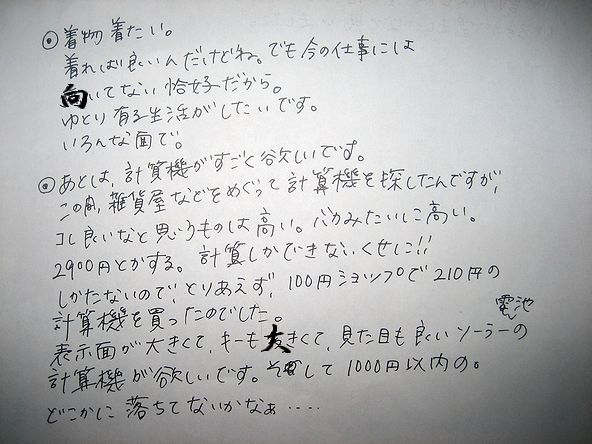 ◎着物着たい。
着れば良いんだけどね。でも今の仕事には
向いてない恰好だから。
ゆとり有る生活がしたいです。
いろんな面で。
◎あとは、計算機がすごく欲しいです。
この間、雑貨屋などをめぐって計算機を探したんですが、
コレ良いなと思うものは高い。バカみたいに高い。
2900円とかする。計算しかできないくせに!!
しかたないので、とりあえず、100円ショップで210円の
計算機を買ったのでした。
表示面が大きくて、キーも大きくて、見た目も良いソーラー電池の
計算機が欲しいです。そして1000円以内の。
どこかに落ちてないかなぁ‥‥